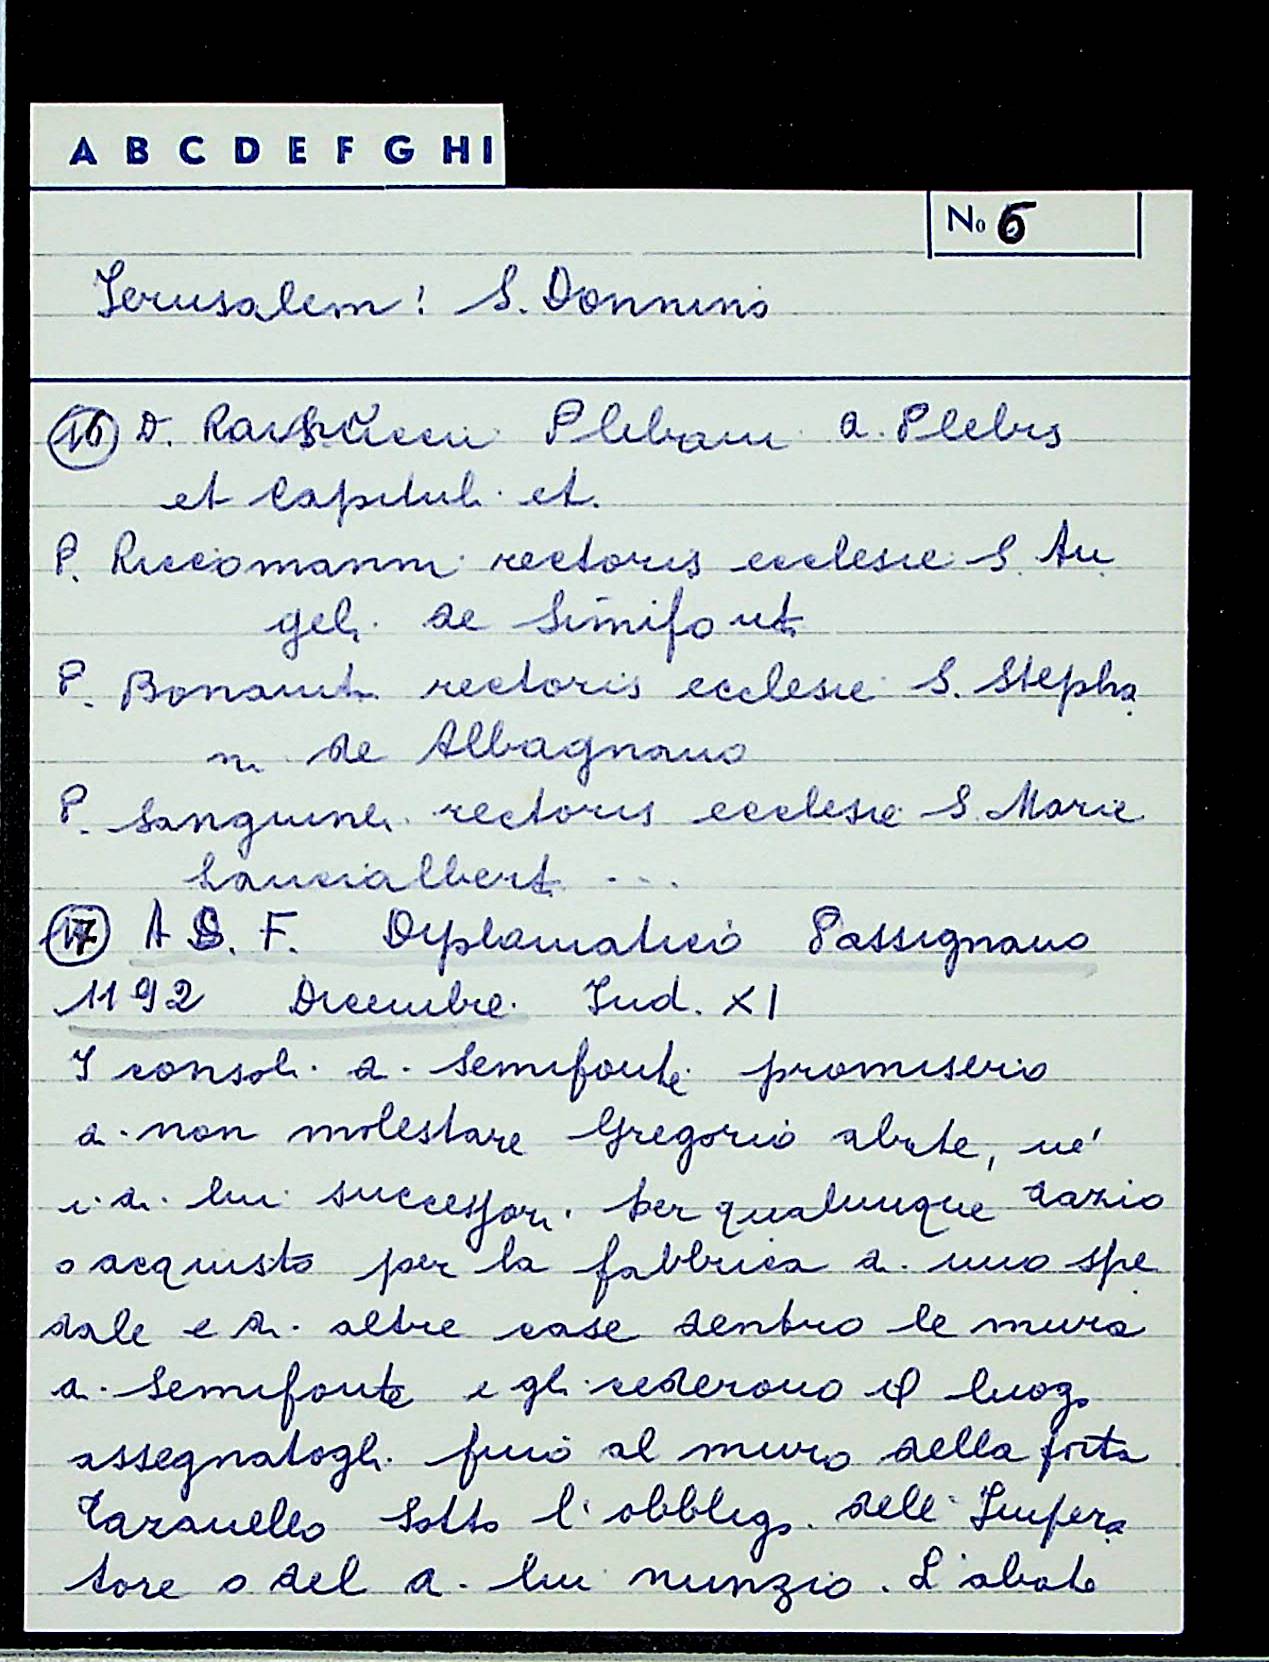 A B C D E F G H I
No 6
Jerusalem: S. Donnino
16 D. Plebani di Plebis
et Capituli et.
P. Riccomanni rectoris ecclesie S. An
geli de Simifonti
P. Bonaiuti rectoris ecclesie S. Stepha
ni de Albagnano
P. Sanguinei rectoris ecclesie S. Marie
17 A S. F. Diplomatico Passignano
1192 Dicembre. Ind. XI
I consoli di Semifonte promiserio
di non molestare Gregorio abate, né
i di lui successori per qualunque dazio
o acquisto per la fabbrica di uno spe
dale e di altre case dentro le mura
di Semifonte e gli cederono il luogo
assegnatogli fino al muro della porta
sotto l'obbligo dell'Impera
tore o del di lui nunzio. L'abate